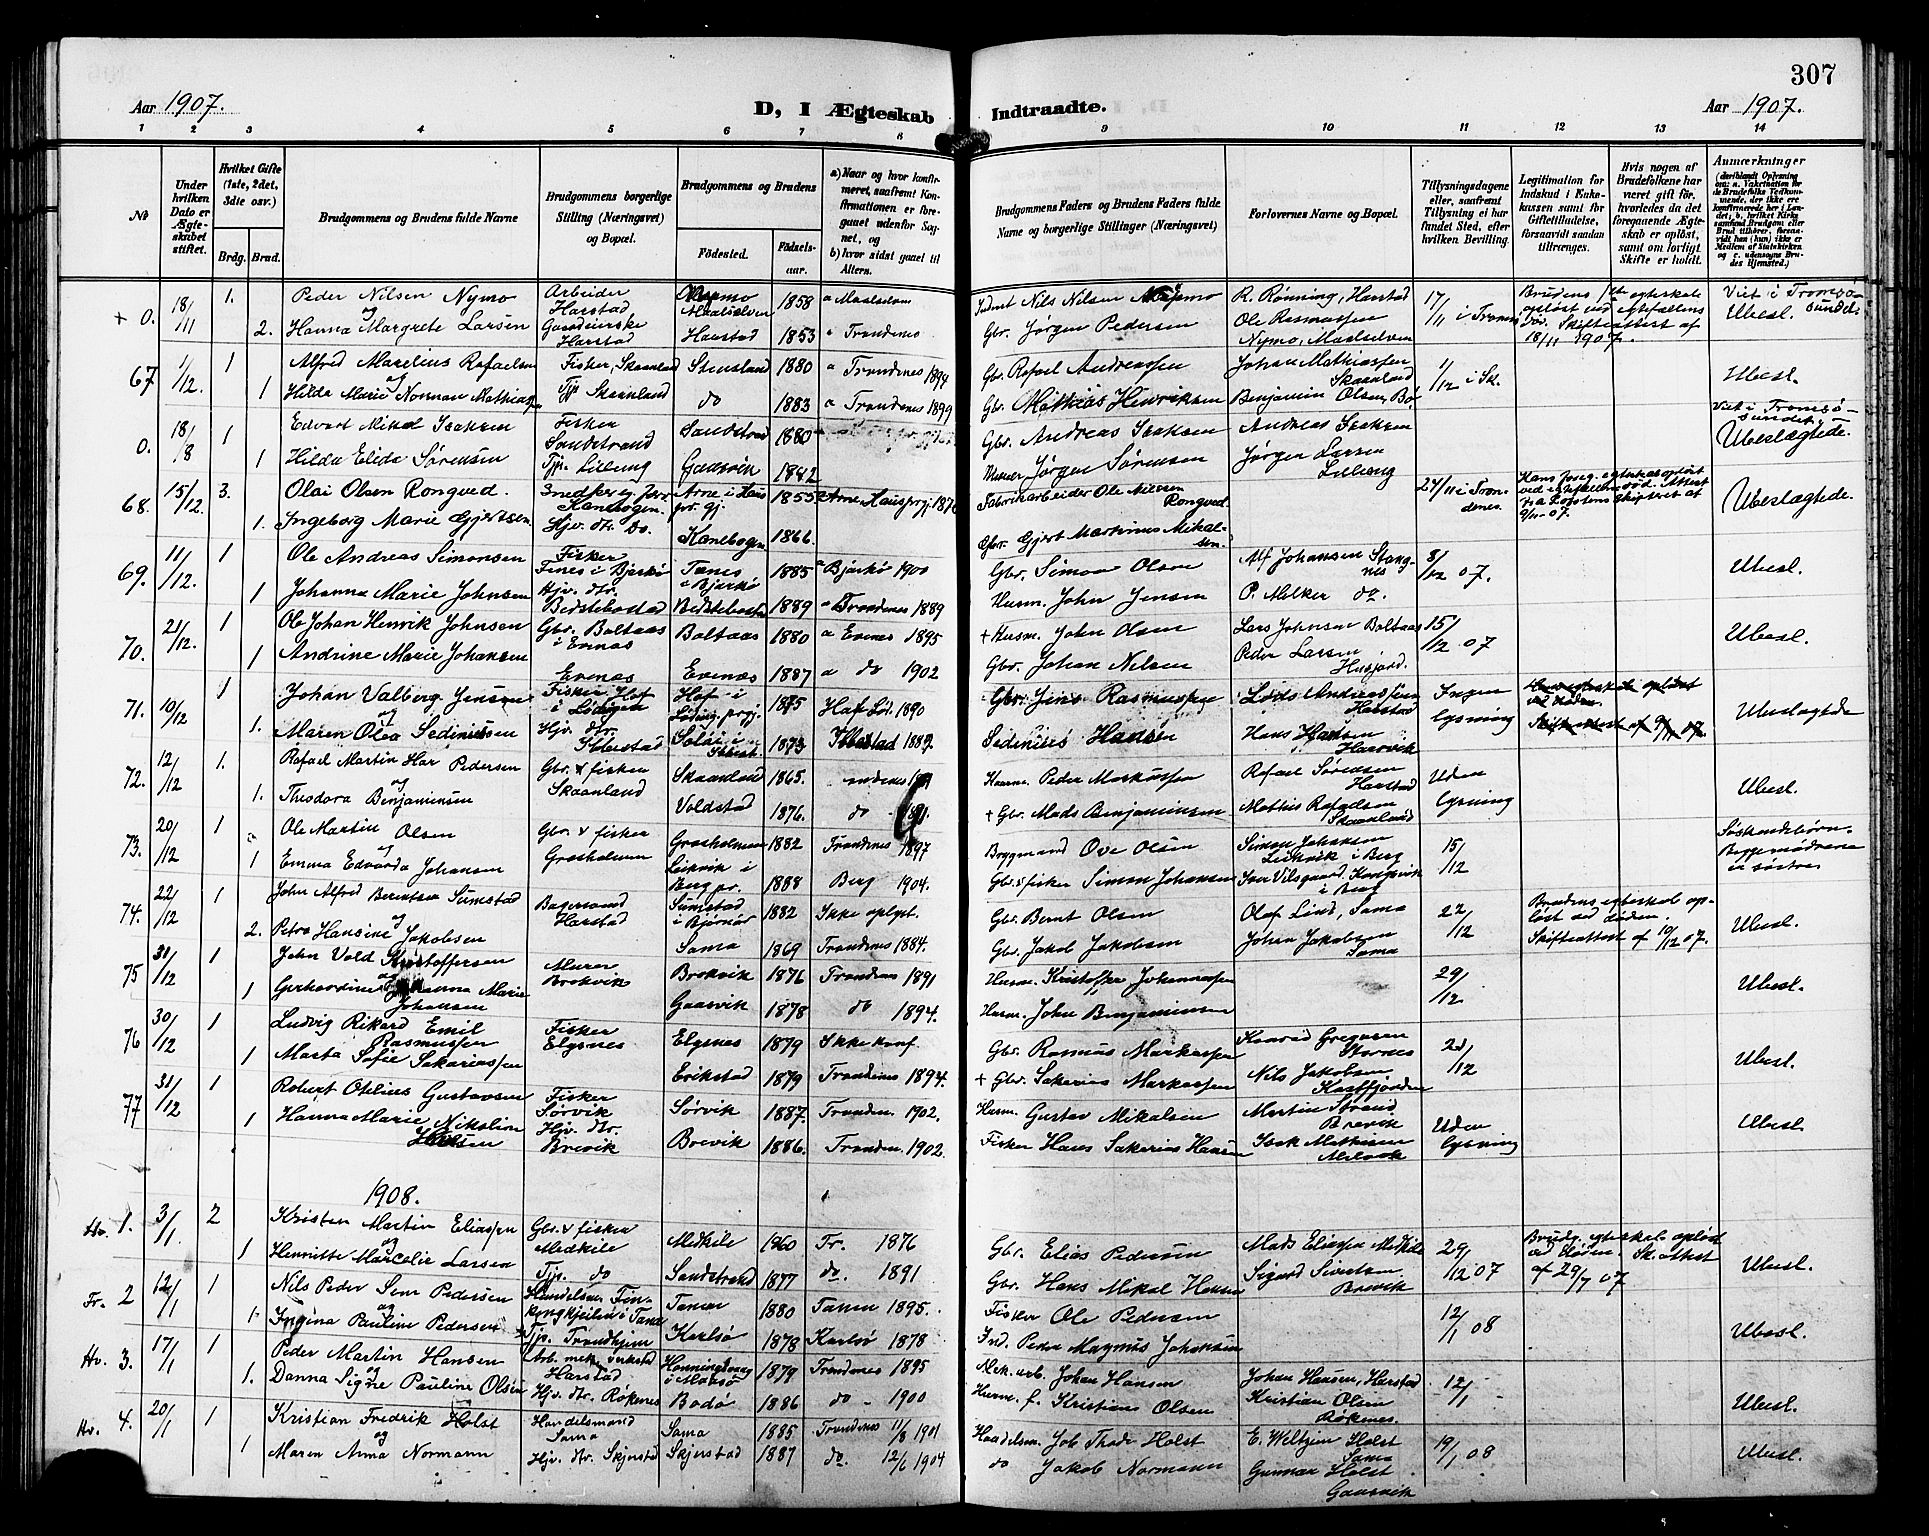 307
Aar 1907.
D, I Ægteskab Indtraadte.
Aar 1907.
1 2 3 4 5 6 7 8 9 10 11 12 13 14
No
Under hvilken Dato er Ægteskabet stiftet.
Hvilket Gifte (1ste, 2det, 3die osv.)
Brdg. Brud.
Brudgommens og Brudens fulde Navne
Brudgommens borgerlige Stilling (Næringsvei) og Bopæl.
Brudgommens og Brudens
Fødested.
Fødselsaar.
a) Naar og hvor konfirmeret, saafremt Konfirmationen er foregaaet udenfor Sognet, og
b) hvor sidst gaaet til Alters.
Brudgommens Faders og Brudens Faders fulde Navne og borgerlige Stillinger (Næringsvei)
Forlovernes Navne og Bopæl.
Tillysningsdagene eller, saafremt Tillysning ei har fundet Sted, efter hvilken Bevilling.
Legitimation for Indskud i Enkekassen samt for Giftetilladelse, forsaavidt saadan tiltrænges.
Hvis nogen af Brudefolkene har været gift før, hvorledes da det foregaaende Ægteskab er opløst, samt om lovligt Skifte er holdt.
Anmærkninger
+ 0. 18/11 1. Peder Nilsen Nymo Arbeider Harstad Nymo Maalselven 1858 a Maalselven Nils Nilsen Nymo R. Rønning, Harstad 17/11 i Troms Brudens 1ste egteskab opløst ved egtefællens død. Skifteattest af 18/11 1907. Viet i Tromsøsundet
og
2. Hanna Margrete Larsen Gaardeierske Harstad Harstad 1853 a Trondenes Gbr. Jørgen Pedersen Ole Rasmussen Nymo, Maalselven Ubesl.
67 1/12. 1 Alfred Marelius Rafaelsen Fisker, Skaanland Stensland 1880 a Trondenes 1894 Gbr. Rafael Andreassen Johan Mathiassen Skaanland 1/12 i Sk. Ubesl.
og
1 Hilda Marie Norman Mathiassen Tjp Skaanland do 1883 a Trondenes 1899 Gbr. Mathias Henriksen Benjamin Olsen, Bø
0. 18/8 1 Edvart Mikal Isaksen Fisker Sandstrand Sandstrand 1880 Gbr. Andreas Isaksen Andreas Isaksen Viet i Tromsøsundet Ubeslægtede.
1 Hilda Elida Sørensen Tjp. Lilleng Gausvik 1882 Murer Jørgen Sørensen Jørgen Larsen Lilleng
68. 15/12. 3. Olai Olsen Rongved. Kanebogen. Arne i Haus pr.gj. 1855 Arne, Haus prgj. Fabrikarbeider Ole Nilssen Rongved 24/11 i Trondenes. Ubeslægtede.
1. Ingeborg Marie Gjertsen Hjv. dtr. Do. Kanebogen 1866. Gbr. Gjert Martinus Mikalsen
69. 11/12. 1 Ole Andreas Simonsen Fisker Fenes i Bjarkø Fenes i Bjarkø 1885 a Bjarkø 1900 Gbr. Simon Olsen Alf Johansen Stangnes 8/12 07. Ubesl.
1 Johanna Marie Johnsen Hjv. dtr. Bedstebostad Bedstebostad 1889 a Trondenes 1889 Husm. John Jensen P. Melker do.
70. 21/12. 1 Ole Johan Henrik Johnsen Gbr. Boltaas i Evenes Boltaas 1880 a Evenes 1895 + Husm. John Olsen Lars Johnsen Boltaas 15/12 07 Ubesl.
1 Andrine Marie Johansen Evenæs Evenæs 1887 a do 1902 Gbr. Johan Nilsen Peder Larsen Husjord.
71. 10/12 1 Johan Valborg Jensen Fisker Hof i Lødingen Hof i Løding. prgj. 1875 Hof Lød. 1890 Gbr. Jens Rasmussen Lods Andreassen Harstad Ingen lysning Ubeslægtede
og
1. Maren Olea Sediniussen Hjv. dtr. Ibbestad 1873 Ibbestad 1887. Sedinius Hansen Hans Hansen Harvik
72. 12/12 1. Rafael Martin Har Pedersen Gbr. & fisker Skaanland Skaanland 1865. Peder Markussen Rafael Sørensen Harstad Uden lysning Ubesl.
og
1. Theodora Benjaminsen Voldstad 1876. do 1891. + Gbr. Mads Benjaminsen Mathis Rafaelsen Skaanland
73. 20/12 1 Ole Martin Olsen Gbr. & fisker Grasholmen Grasholmen 1882 Trondenes 1897 Bryggemand Ove Olsen Simon Johansen Leikvik i Berg 15/12 Søskendebørn. Begge mødrene er søstre
og
1 Emma Edvarda Johansen Leikvik i Berg pr. 1888 Berg 1904. Gbr. & fisker Simon Johansen i Berg
74. 22/12 1 John Alfred Berntsen Sumstad Bagersvend Harstad Sumstad i Bjørnør 1882 Ikke oplyst. Gbr. Bernt Olsen Olaf Lind, Sama 22/12 Brudens egteskab opløst ved døden. Skifteattest af 19/12 07. Ubesl.
og
2. Petra Hansine Jakobsen Sama 1869 Trondenes 1884. Gbr. Jakob Jakobsen Johan Jakobsen Sama
75 31/12 1 John Vold Kristoffersen Murer Brokvik Brokvik 1876 Trondenes 1891 Husm. Kristoffer Johannessen 29/12 Ubesl.
og
1 Gerhardine Johanna Marie Johansen Gausvik 1878 do 1894. Husm. John Benjaminsen
76 30/12 1 Ludvig Rikard Emil Rasmussen Fisker Elgsnes Elgsnes 1879 Ikke konf. Gbr. Rasmus Markussen Konrad Gregusen Stornes 21/12 Ubesl.
1 Marta Sofie Sakariassen Erikstad 1879 Trondenes 1894. + Gbr. Sakarias Markussen Nils Jakobsen Kasfjorden
77 31/12 1 Robert Otelius Gustavsen Fisker Sørvik Sørvik 1887. Tronden. 1902. Husm. Gustav Mikalsen Martin Strand Brevik Uden lysning Ubesl.
1 Hanna Marie Nikoline Hansen Hjv. dtr. Brevik Brevik 1886. Tronden. 1902. Fisker Hans Sakarius Hansen Isak Mathisen
1908.
Hv. 1. 3/1. 2 Kristen Martin Eliassen Gbr. & fisker Medkile Medkile 1860 Tr. 1876 Gbr. Elias Pedersen Mads Eliassen Medkile 29/12 07 Brudg. egteskab opløst ved døden. Sk. attest af 29/7 07 Ubesl.
og
1 Henriette Marcelie Larsen Tjp. do Sandstrand 1877 do. 1891 Gbr. Hans Mikal Hansen Sigurd Sivertsen Brevik
Fr. 2 12/1 1 Nils Peder Som Pedersen Tanen 1880 Tanen 1895. Fisker Ole Pedersen 12/1 08 Ubesl.
og
1. Ingina Pauline Pedersen Tjp. Trondhjem Karlsø 1878 Karlsø 1878 Ind. Peder Magnus Johansen
Hv. 3. 17/1 1 Peder Martin Hansen Arb. mek. verksted Harstad Honningsvaag i Maasø 1879 Trondenes 1895 Mek. arb. Johan Hansen Johan Hansen, Harstad 12/1 Ubesl.
og
1. Danna Signe Pauline Olsen Hjv. dtr. Røkenes Bodø 1886 do - 1900 Husm. f. Kristians Olsen Kristian Olsen Røkenes.
Hv. 4. 20/1 1 Kristian Fredrik Holst Handelsmand Sama Sama 1885 Trondenes 11/8 1901 Handelsm. Job Thode Holst E. Weltzien Holst Sama 19/1 08 Ubesl.
og
1 Maren Anna Normann Hjv. dtr. Skjerstad Skjerstad 1887 do. 12/6 1904 do Jakob Normann Gunnar Holst Gausvik